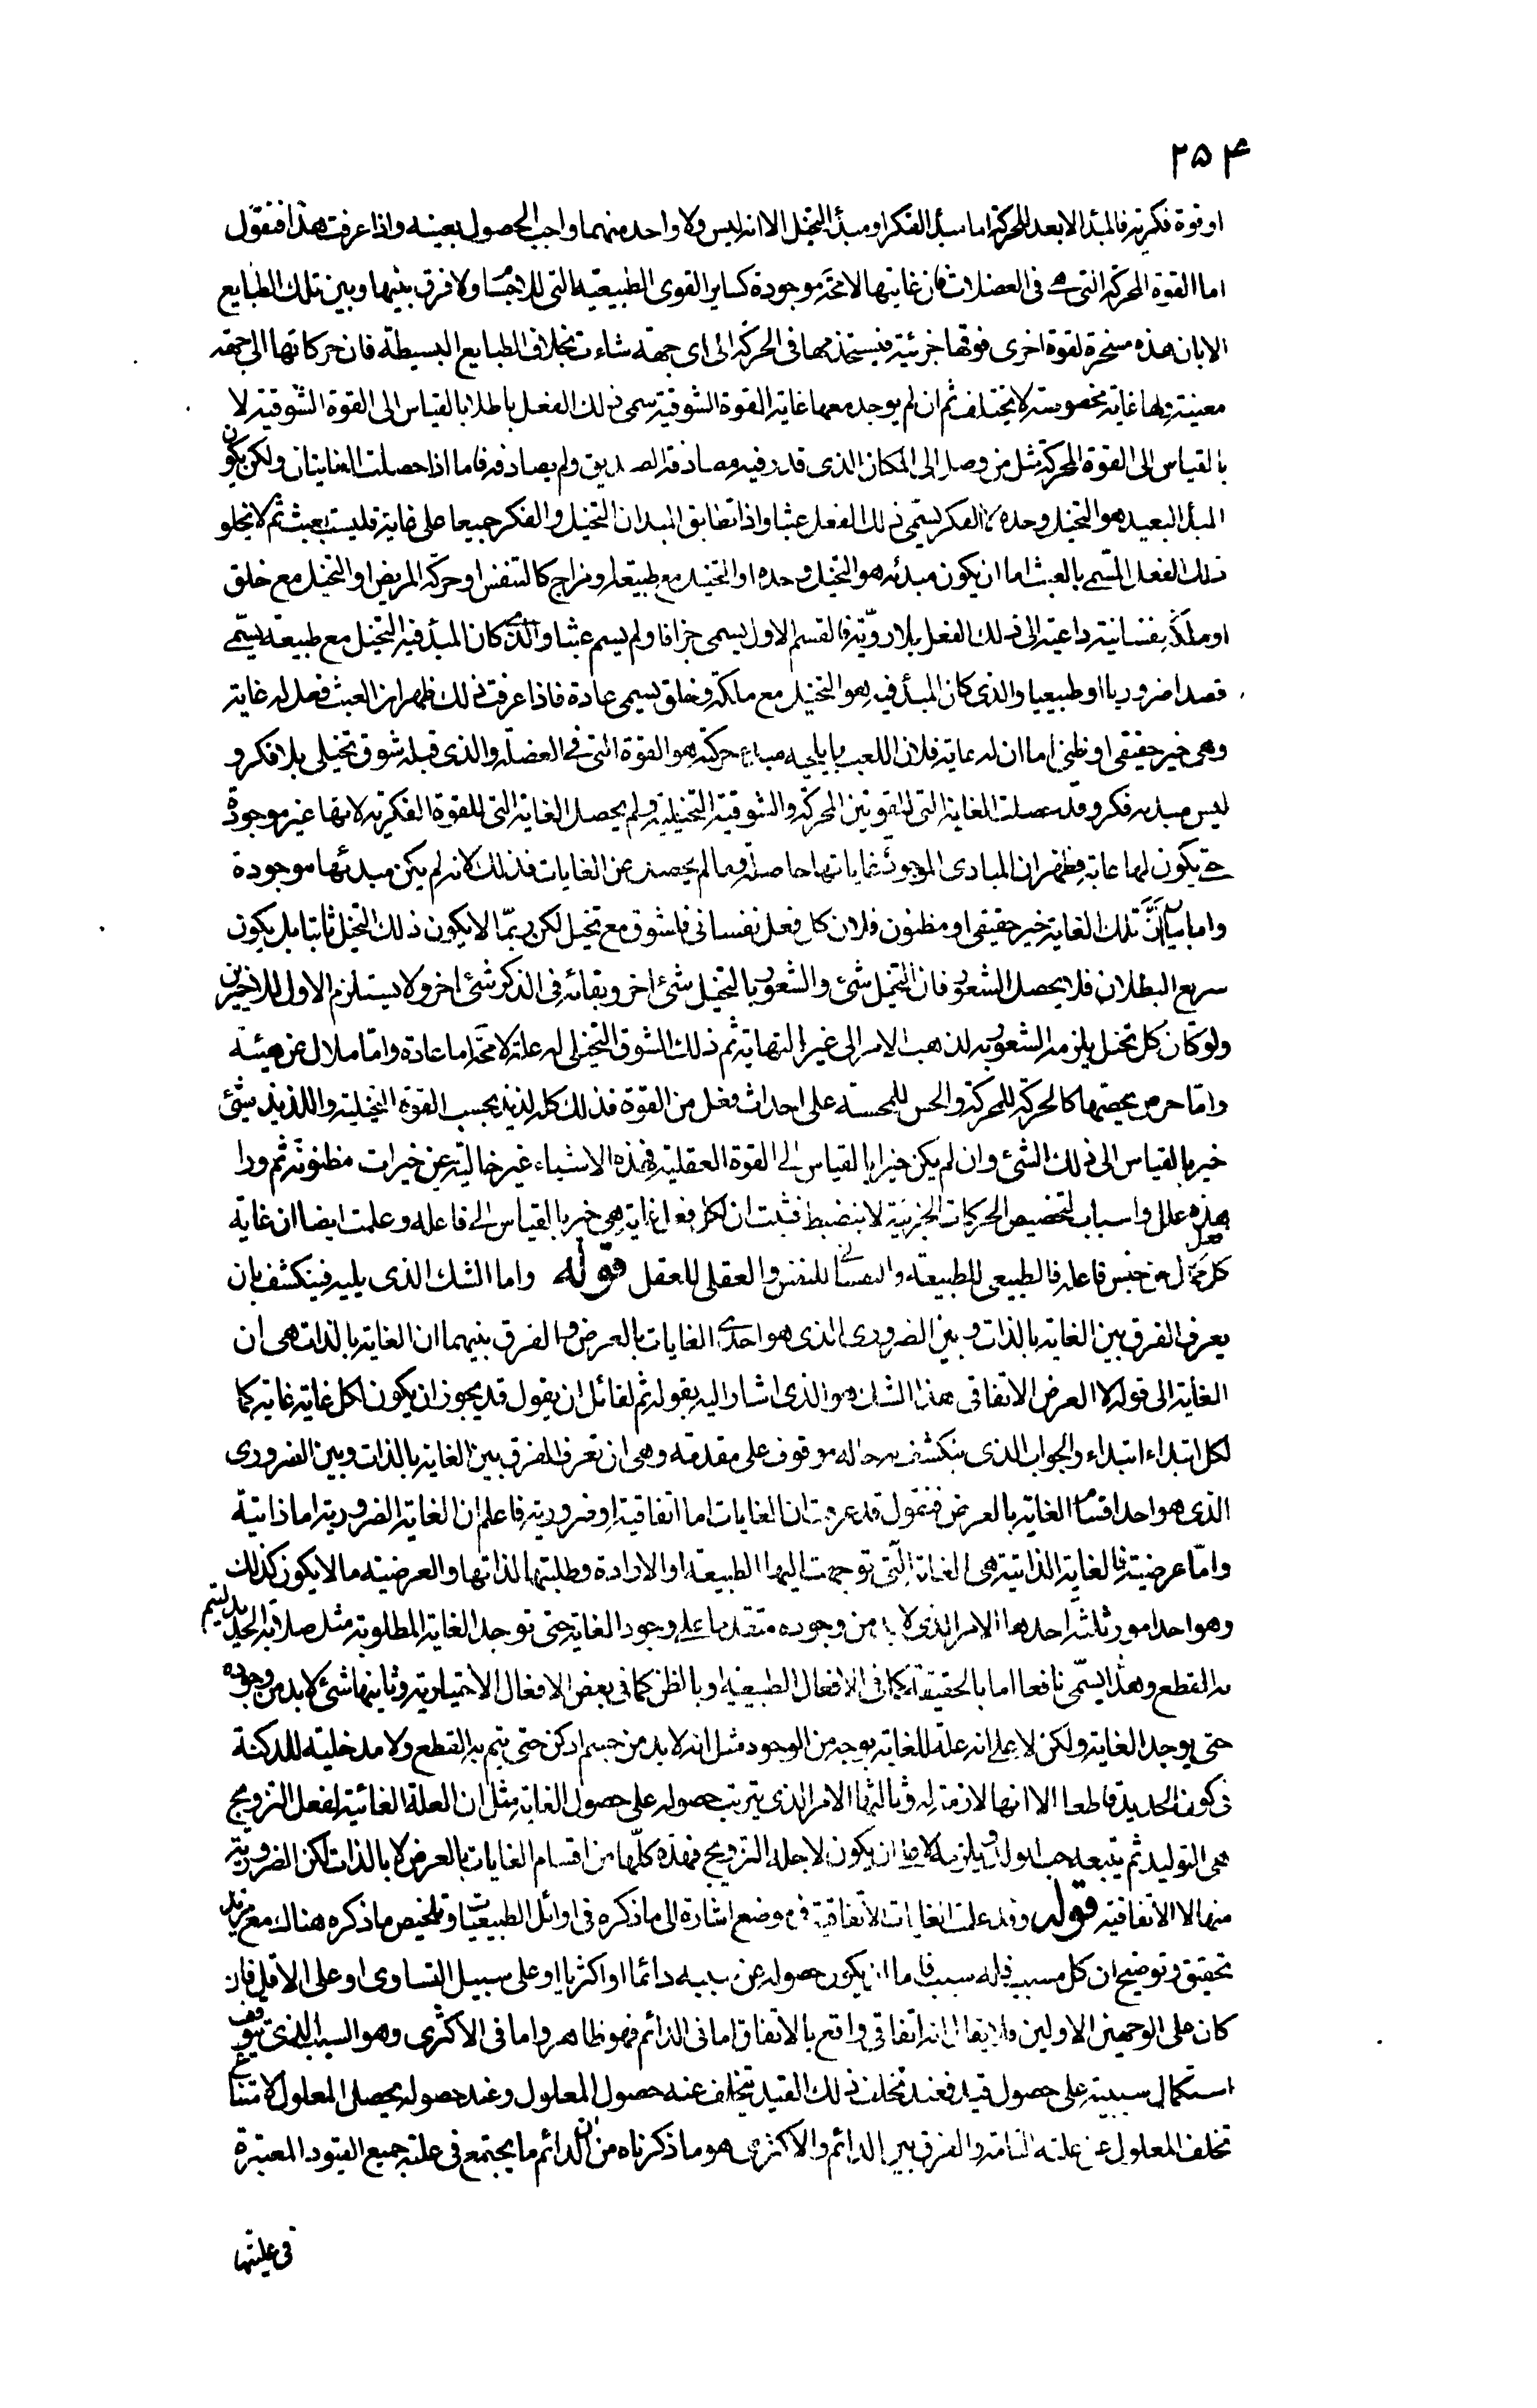 ۲۵۴
او قوة فكرية فالمبدأ الابعد للحركة اما مبدأ الفكر او مبدأ التخيل الا انه ليس ولا واحد منهما واجب الحصول بعينه واذا عرفت هذا فنقول
اما القوة المحركة التى هى فى العضلات فان غايتها لا محة موجودة كساير القوى الطبيعية التى للاجسام ولا فرق بينها وبين تلك الطبايع
الا بان هذه مسخرة لقوة اخرى فوقها جزئية فيستخدمها فى الحركة الى اى جهة شاءت بخلاف الطبايع البسيطة فان حركاتها الى جهة
معينة ولها غاية مخصوصة لا يختلف ثم ان لم يوجد معها غاية القوة الشوقية سمى ذلك الفعل باطلا بالقياس الى القوة الشوقية لا
بالقياس الى القوة المحركة مثل من وصل الى المكان الذى قدر فيه مصادفة الصديق ولم يصادفه فاما اذا حصلت الغايتان ولكن يكون
المبدأ البعيد هو التخيل وحده لا الفكر يسمى ذلك الفعل عبثا واذا تطابق المبدان التخيل والفكر جميعا على غاية فليست بعبث ثم لا يخلو
ذلك الفعل المسمى بالعبث اما ان يكون مبدئه هو التخيل وحده او التخيل مع طبيعة او مزاج كالتنفس او حركة المريض او التخيل مع خلق
او ملكة نفسانية داعية الى ذلك الفعل بلا روية فالقسم الاول يسمى جزافا ولم يسم عبثا والذى كان المبدأ فيه التخيل مع طبيعة يسمى
قصدا ضروريا او طبيعيا والذى كان المبدأ فيه هو التخيل مع ملكة وخلق يسمى عادة فاذا عرفت ذلك ظهر ان العبث فعل له غاية
وهى خير حقيقى او ظنى اما ان له غاية فلان اللعب باللحية مبدء حركته هو القوة التى فى العضلة والذى قبله شوق تخيلى بلا فكر و
ليس مبدئه فكر وقد حصلت الغاية التى للقوتين المحركة والشوقية التخيلية ولم يحصل الغاية التى للقوة الفكرية لانها غير موجودة
حتى يكون لها غاية فظهر ان المبادى الموجودة غاياتها حاصلة وما لم يحصل من الغايات فذلك لانه لم يكن مبدئها موجودة
واما بيان ان تلك الغاية خير حقيقى او مظنون فلان كل فعل نفسانى فلشوق مع تخيل لكن ربما لا يكون ذلك التخيل ثابتا بل يكون
سريع البطلان فلا يحصل الشعور فان التخيل شئ والشعور بالتخيل شئ اخر وبقائه فى الذكر شئ اخر ولا يستلزم الاول للاخيرين
ولو كان كل تخيل يلزمه الشعور به لذهب الامر الى غير النهاية ثم ذلك الشوق التخيلى له علة لا محة اما عادة واما ملال عن هيئة
واما حرص يخصها كالحركة للمحركة والحس للمحسة على احداث فعل من القوة فذلك كله لذيذ بحسب القوة التخيلية واللذيذ شئ
خير بالقياس الى ذلك الشئ وان لم يكن خيرا بالقياس الى القوة العقلية فهذه الاشياء غير خالية عن خيرات مظنونة ثم ورا
هذه علل واسباب لتخصيص الحركات الجزئية لا ينضبط فثبت ان لكل فعل غاية هى خير بالقياس الى فاعله وعلمت ايضا ان غاية
كل فعل من جنس فاعله فالطبيعى للطبيعة والنفسانى للنفس والعقلى للعقل قوله واما الشك الذى يليه فينكشف بان
يعرف الفرق بين الغاية بالذات وبين الضرورى الذى هو احدى الغايات بالعرض والفرق بينهما ان الغاية بالذات هى ان
الغاية الى قوله لا العرض الاتفاقى هذا الشك هو الذى اشار اليه بقوله ثم لقائل ان يقول قد يجوز ان يكون لكل غاية غاية كما
لكل ابتداء ابتداء والجواب الذى ينكشف به حاله موقوف على مقدمة وهى ان تعرف الفرق بين الغاية بالذات وبين الضرورى
الذى هو احد اقسام الغاية بالعرض فنقول قد عرفت ان الغايات اما اتفاقية او ضرورية فاعلم ان الغاية الضرورية اما ذاتية
واما عرضية فالغاية الذاتية هى الغاية التى توجهت اليها الطبيعة او الارادة وطلبتها لذاتها والعرضية ما لا يكون كذلك
وهو احد امور ثلثة احدها الامر الذى لا بد من وجوده متقدما على وجود الغاية حتى توجد الغاية المطلوبة مثل صلابة الحديد ليتم
به القطع وهذا يسمى نافعا اما بالحقيقة كما فى الافعال الطبيعية او بالظن كما فى بعض الافعال الاختيارية وثانيها شئ لا بد من وجوده
حتى يوجد الغاية ولكن لا على انه علة للغاية بوجه من الوجود مثل انه لا بد من جسم ادكن حتى يتم به القطع ولا مدخلية للدكنة
فى كون الحديد قاطعا الا انها لازمة له وثالثها الامر الذى يترتب حصوله على حصول الغاية مثل ان العلة الغائية لفعل التزويج
هى التوليد ثم يتبعه حب الولد ويلزمه لا ان يكون لاجله التزويج فهذه كلها من اقسام الغايات بالعرض لا بالذات لكن الضرورية
منها لا الاتفاقية قوله وقد علمت الغايات الاتفاقية فى موضع اشارة الى ما ذكره فى اوائل الطبيعيات وتلخيص ما ذكره هناك مع مزيد
تحقيق وتوضيح ان كل مسبب فله سبب فاما ان يكون حصوله عن سببه دائما او اكثريا او على سبيل التساوى او على الاقل فان
كان على الوجهين الاولين فلا يقال انه اتفاقى واقع بالاتفاق اما فى الدائم فهو ظاهر واما فى الاكثرى وهو السبب الذى توقف
استكمال سببيته على حصول قيد فعند تخلف ذلك القيد يتخلف عنه حصول المعلول وعند حصوله يحصل المعلول لامتناع
تخلف المعلول عن علته التامة والفرق بين الدائم والاكثرى هو ما ذكرناه من ان الدائم ما يجتمع فى علته جميع القيود المعتبرة
فى عليتها